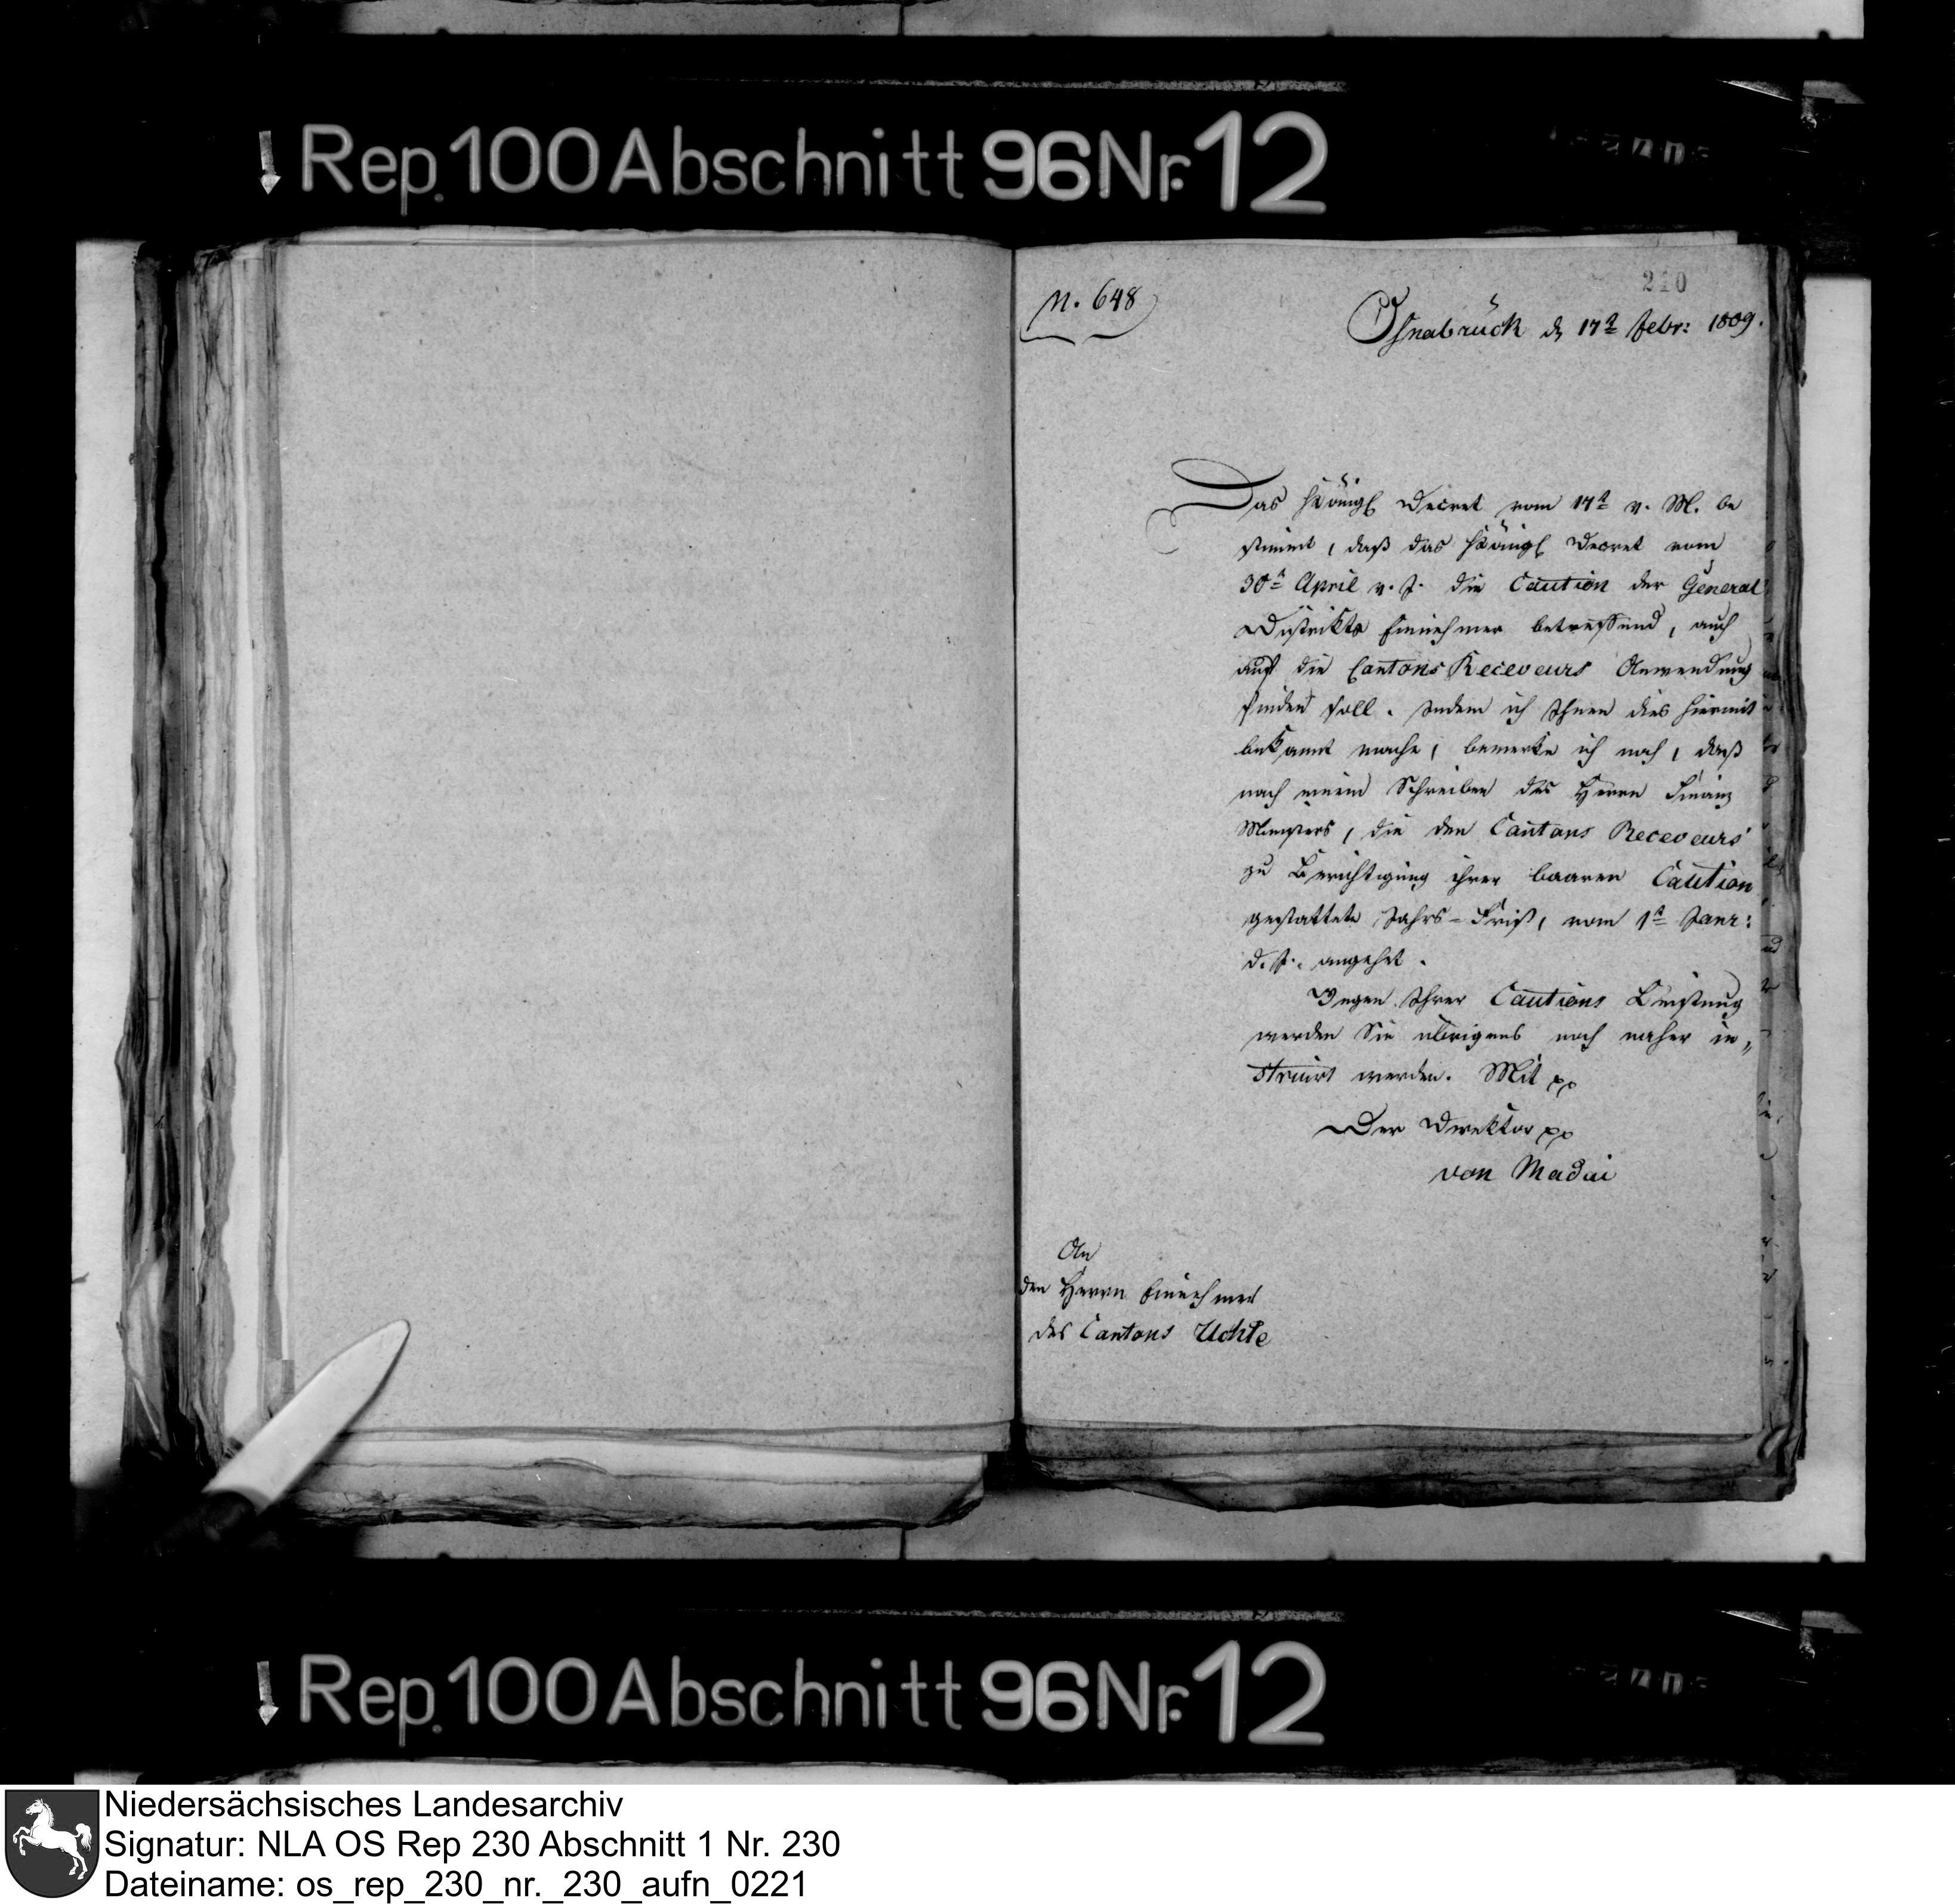 Rep. 100 Abschnitt 96 Nr. 12
210
N. 648
Osnabrück d 17t Febr: 1809.
Das Königl Decret vom 17t v. M. be
stimmt, daß das Königl Decret vom
30t April v. J. die Caution der General
Distrikts Einnehmer betreffend, auch
auf die Cantons Receveurs Anwendung
finden soll. Indem ich Ihnen dies hiermit
bekannt mache, bemerke ich noch, daß
nach einem Schreiben des Herrn Finanz
Ministers, die den Cantons Receveurs
zu Berichtigung ihrer baaren Caution
gestattete Jahrs-Frist, vom 1t Janr:
d. J. angehet.
Wegen Ihrer Cautions Leistung
werden Sie übrigens noch naher in„
struirt werden. Mit pp
Der Direktor pp
von Madai
An
den Herrn Einnehmer
des Cantons Uchte
Rep. 100 Abschnitt 96 Nr. 12
Niedersächsisches Landesarchiv
Signatur: NLA OS Rep 230 Abschnitt 1 Nr. 230
Dateiname: os_rep_230_nr._230_aufn_0221